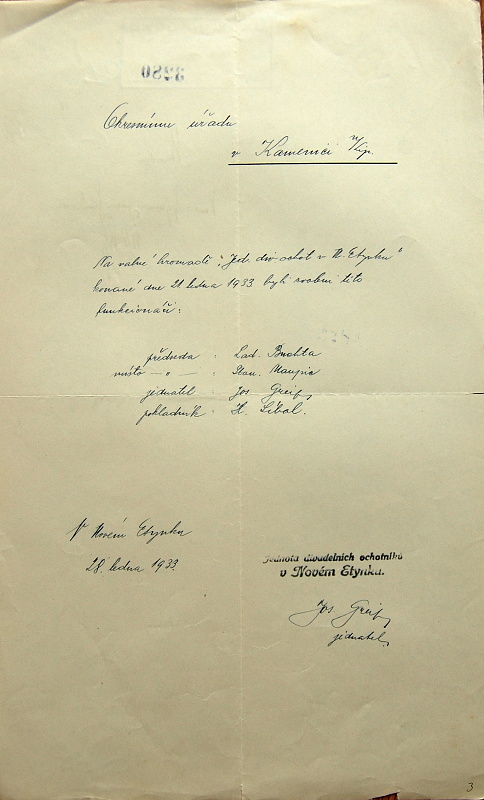 Okresnímu úřadu
v Kamenici n/Lip.
Na valné hromadě „Jed. div. ochot. v N. Etynku"
konané dne 21 ledna 1933 byli zvoleni tito
funkcionáři:
předseda : Lad. Buchta
místo — „ — : Stan.
jednatel : Jos Greif
pokladník : H. Cibal.
V Novém Etynku
28. ledna 1933.
Jednota divadelních ochotníků
v Novém Etynku.
Jos Greif
jednatel
3